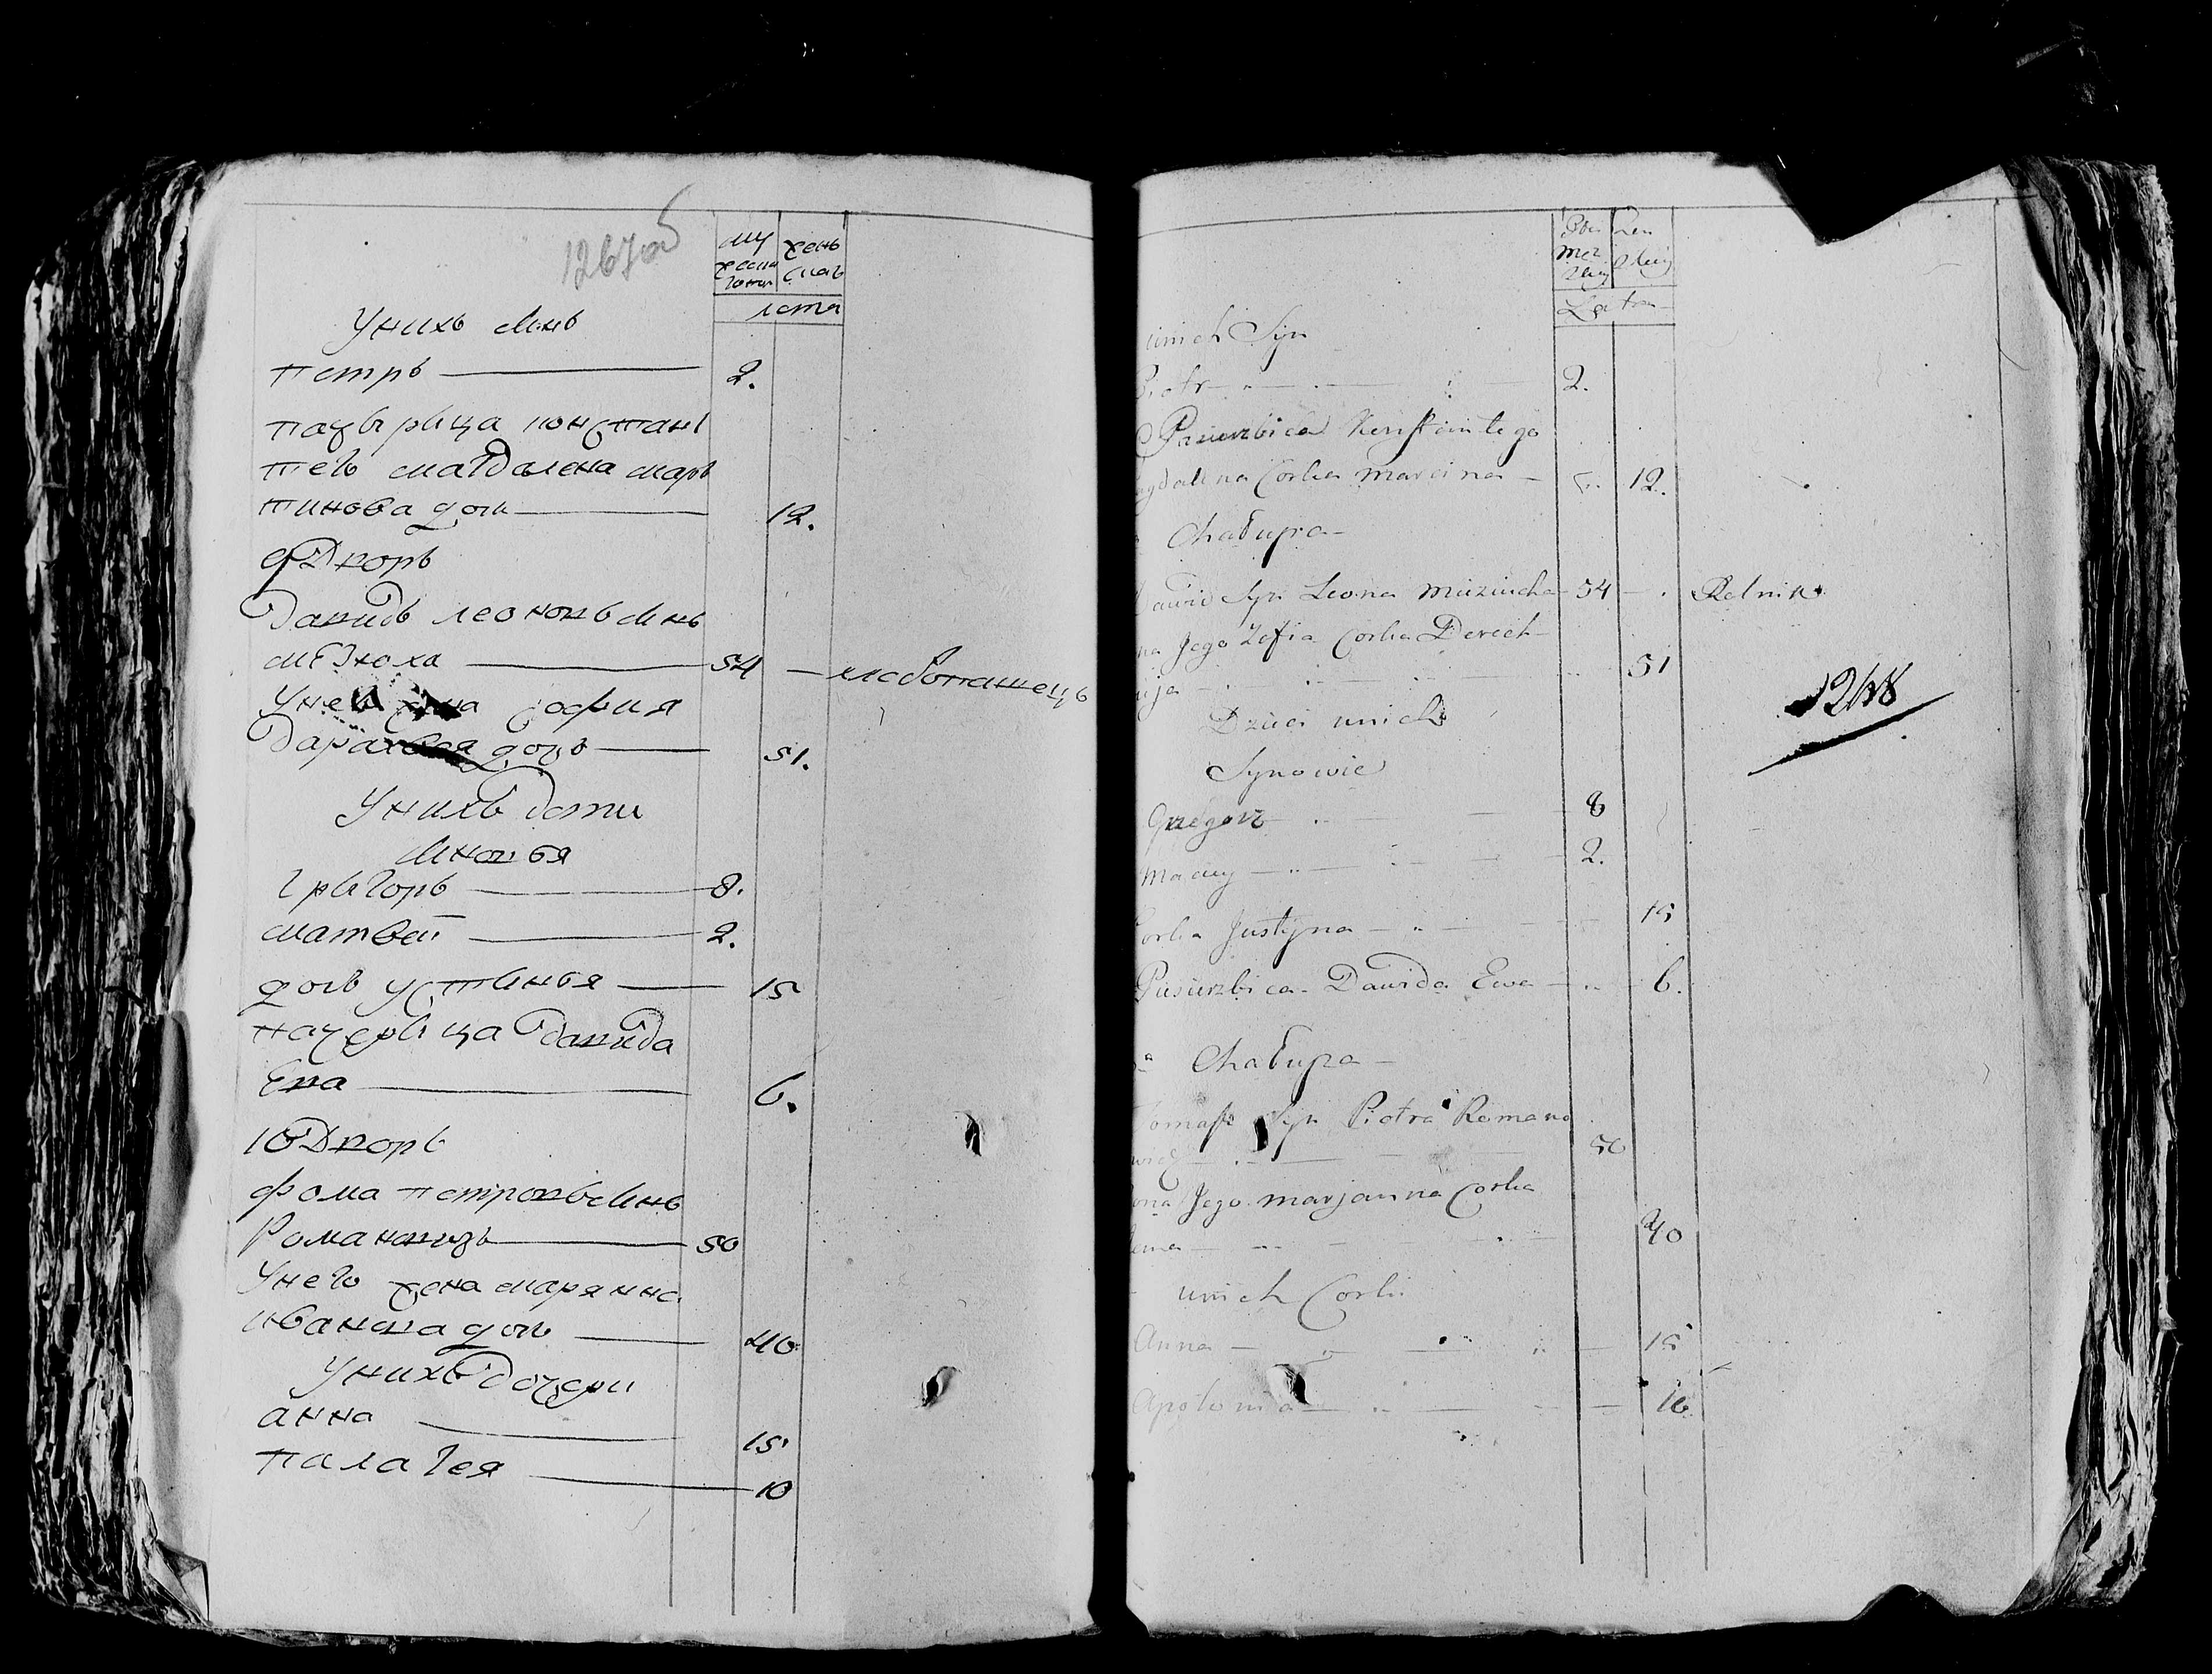 1267об
му жеска гопол
жень скаго
лета
У нихъ сынъ
петръ 2.
пачерица констант
тего магдалена мар
тинова дочь 12.
9 Дворъ
Давидъ леоновъ сынъ
мѣзюха 54 хлебопашецъ
У него жена зофия
дочь 51.
У нихъ дети
сыновья
григоръ 8.
матвей 2.
дочь устинья 15
пачерица Давида
Ева 6.
10 Дворъ
фома петровъ сынъ
Романовичъ 50
У него жена марянна
иванова дочь 40
У нихъ дочери
анна 15
палагея 10
Lata
unich Syn
Piotr 2.
Pasierzbica Konstantego
agdalena Corka Marcina 12.
Chałupa
Dawid Syn Leona Miziucha 54 Rolnik
na Jego Zofia Corka Doroch
51
1268
Dzieci unich
Synowie
Grzegorz 8
Maciey 2.
Corka Justyna 15
Pasierzbica Dawida Ewa 6.
Chałupa
Tomasz Syn Piotra Romano
wicz 50
ona Jego Marjanna Corka
40
unich Corki
Anna 15
Apolonia 10